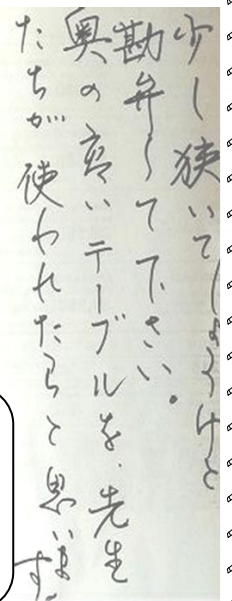 少し狭いでしょうけど
勘弁して下さい。
奥の高いテーブルを、先生
たちが使われたらと思います。